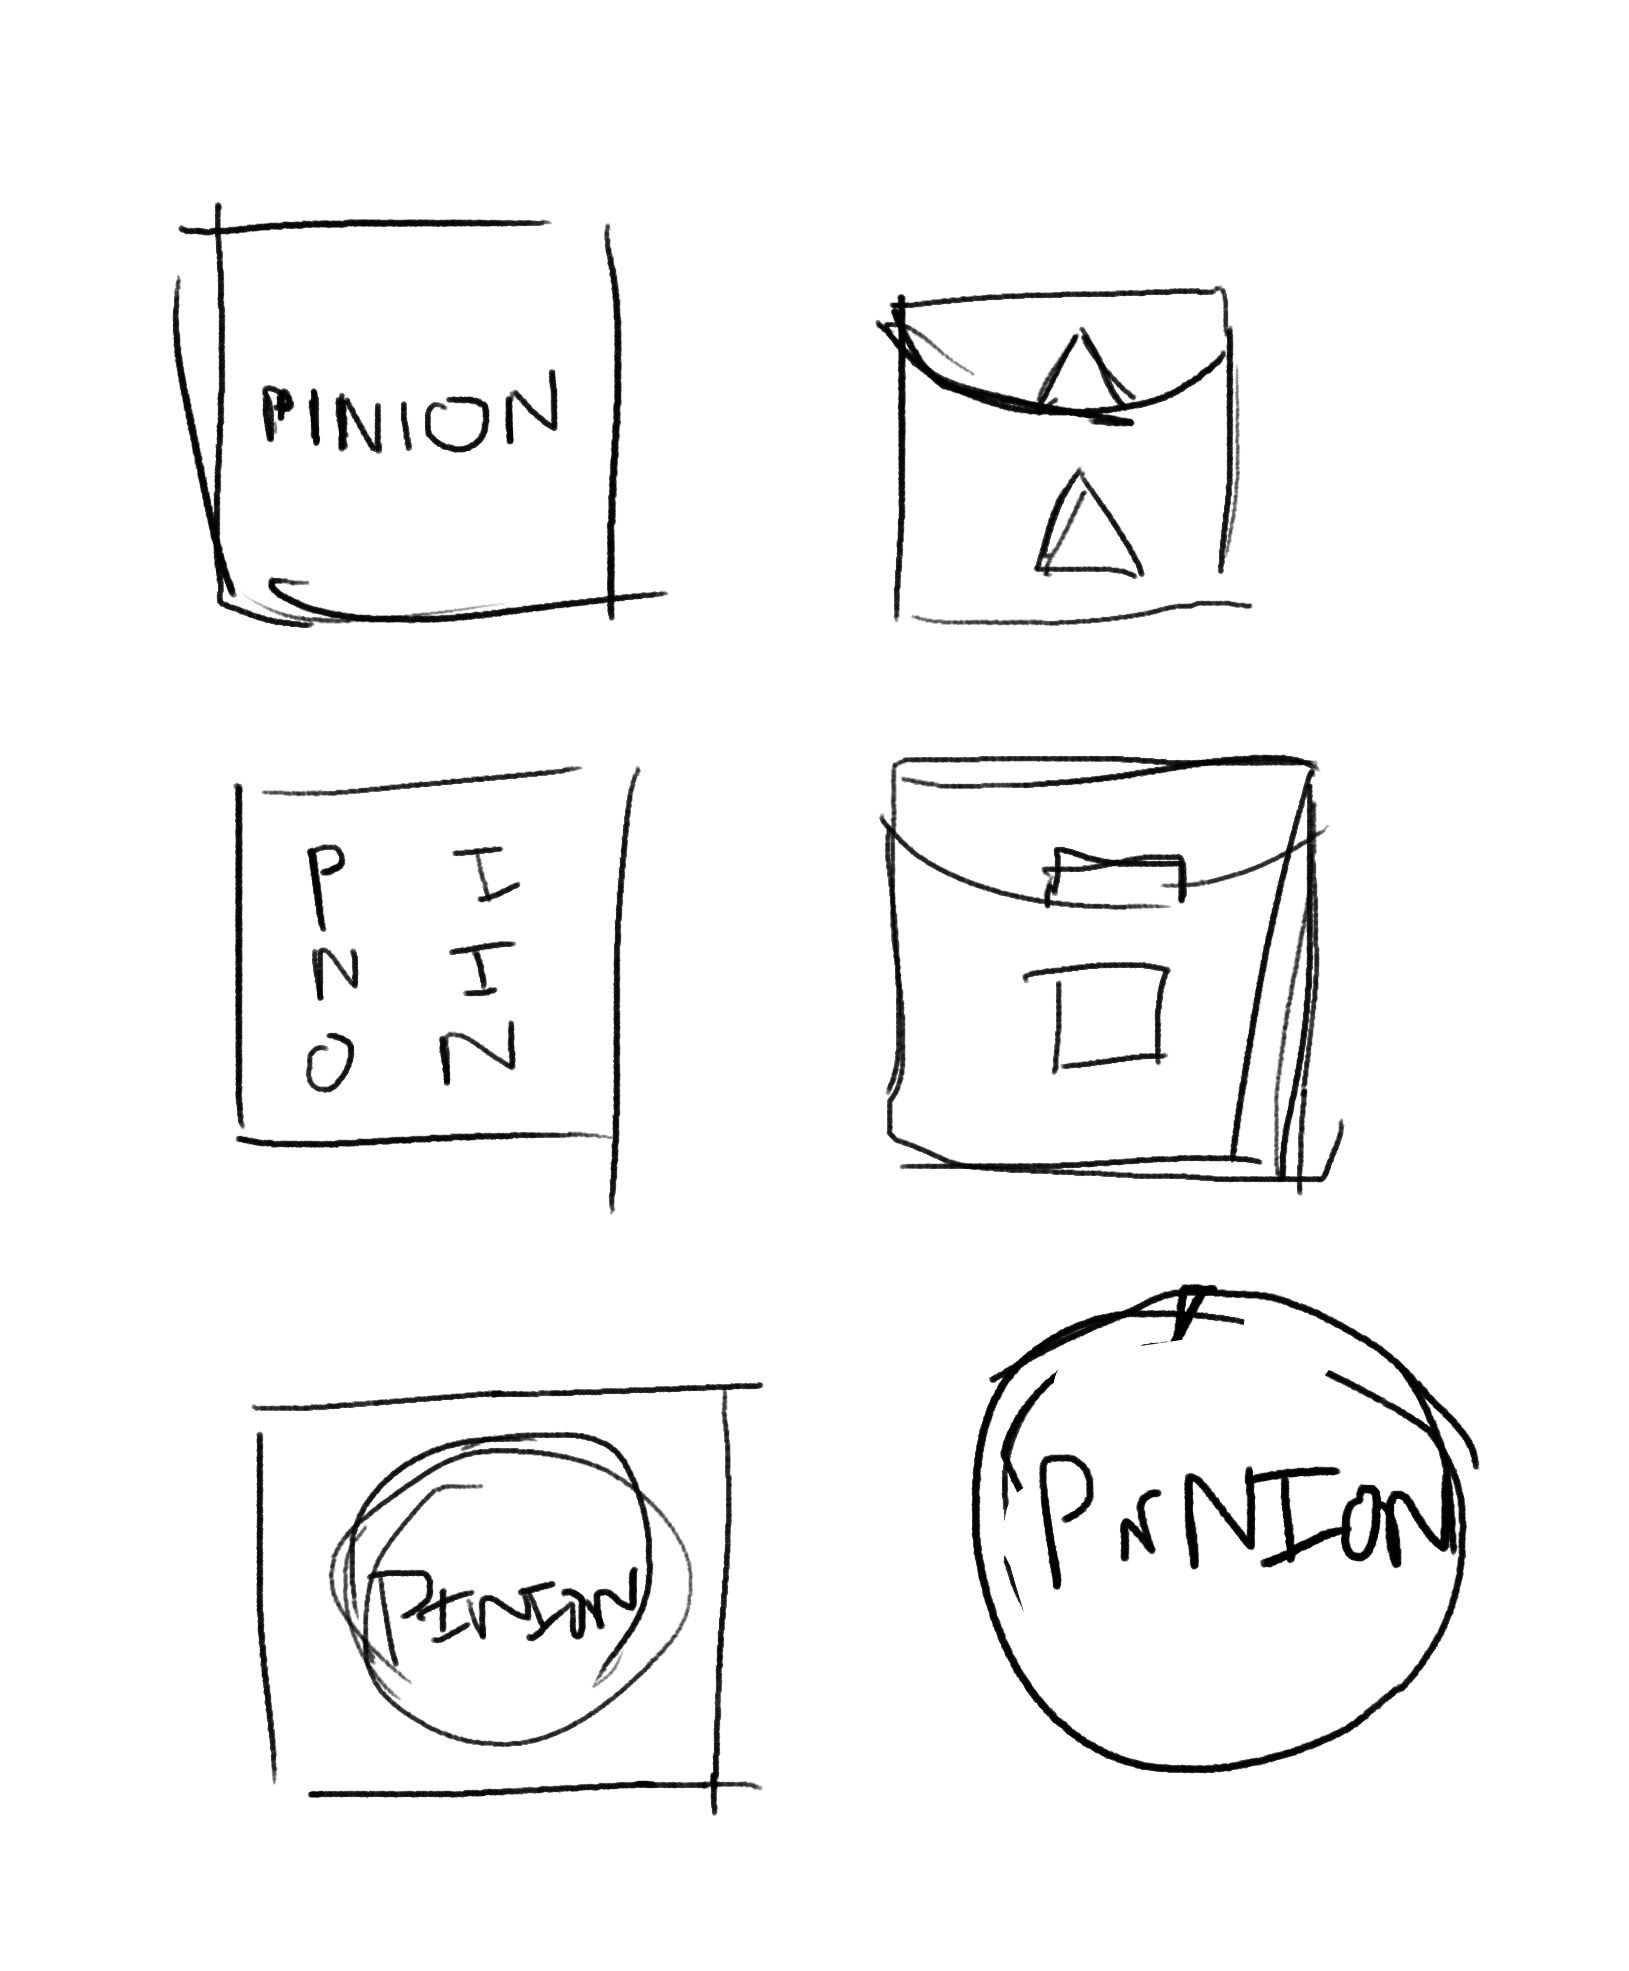 PINION
P I
N I
O N
PINION
PNNION